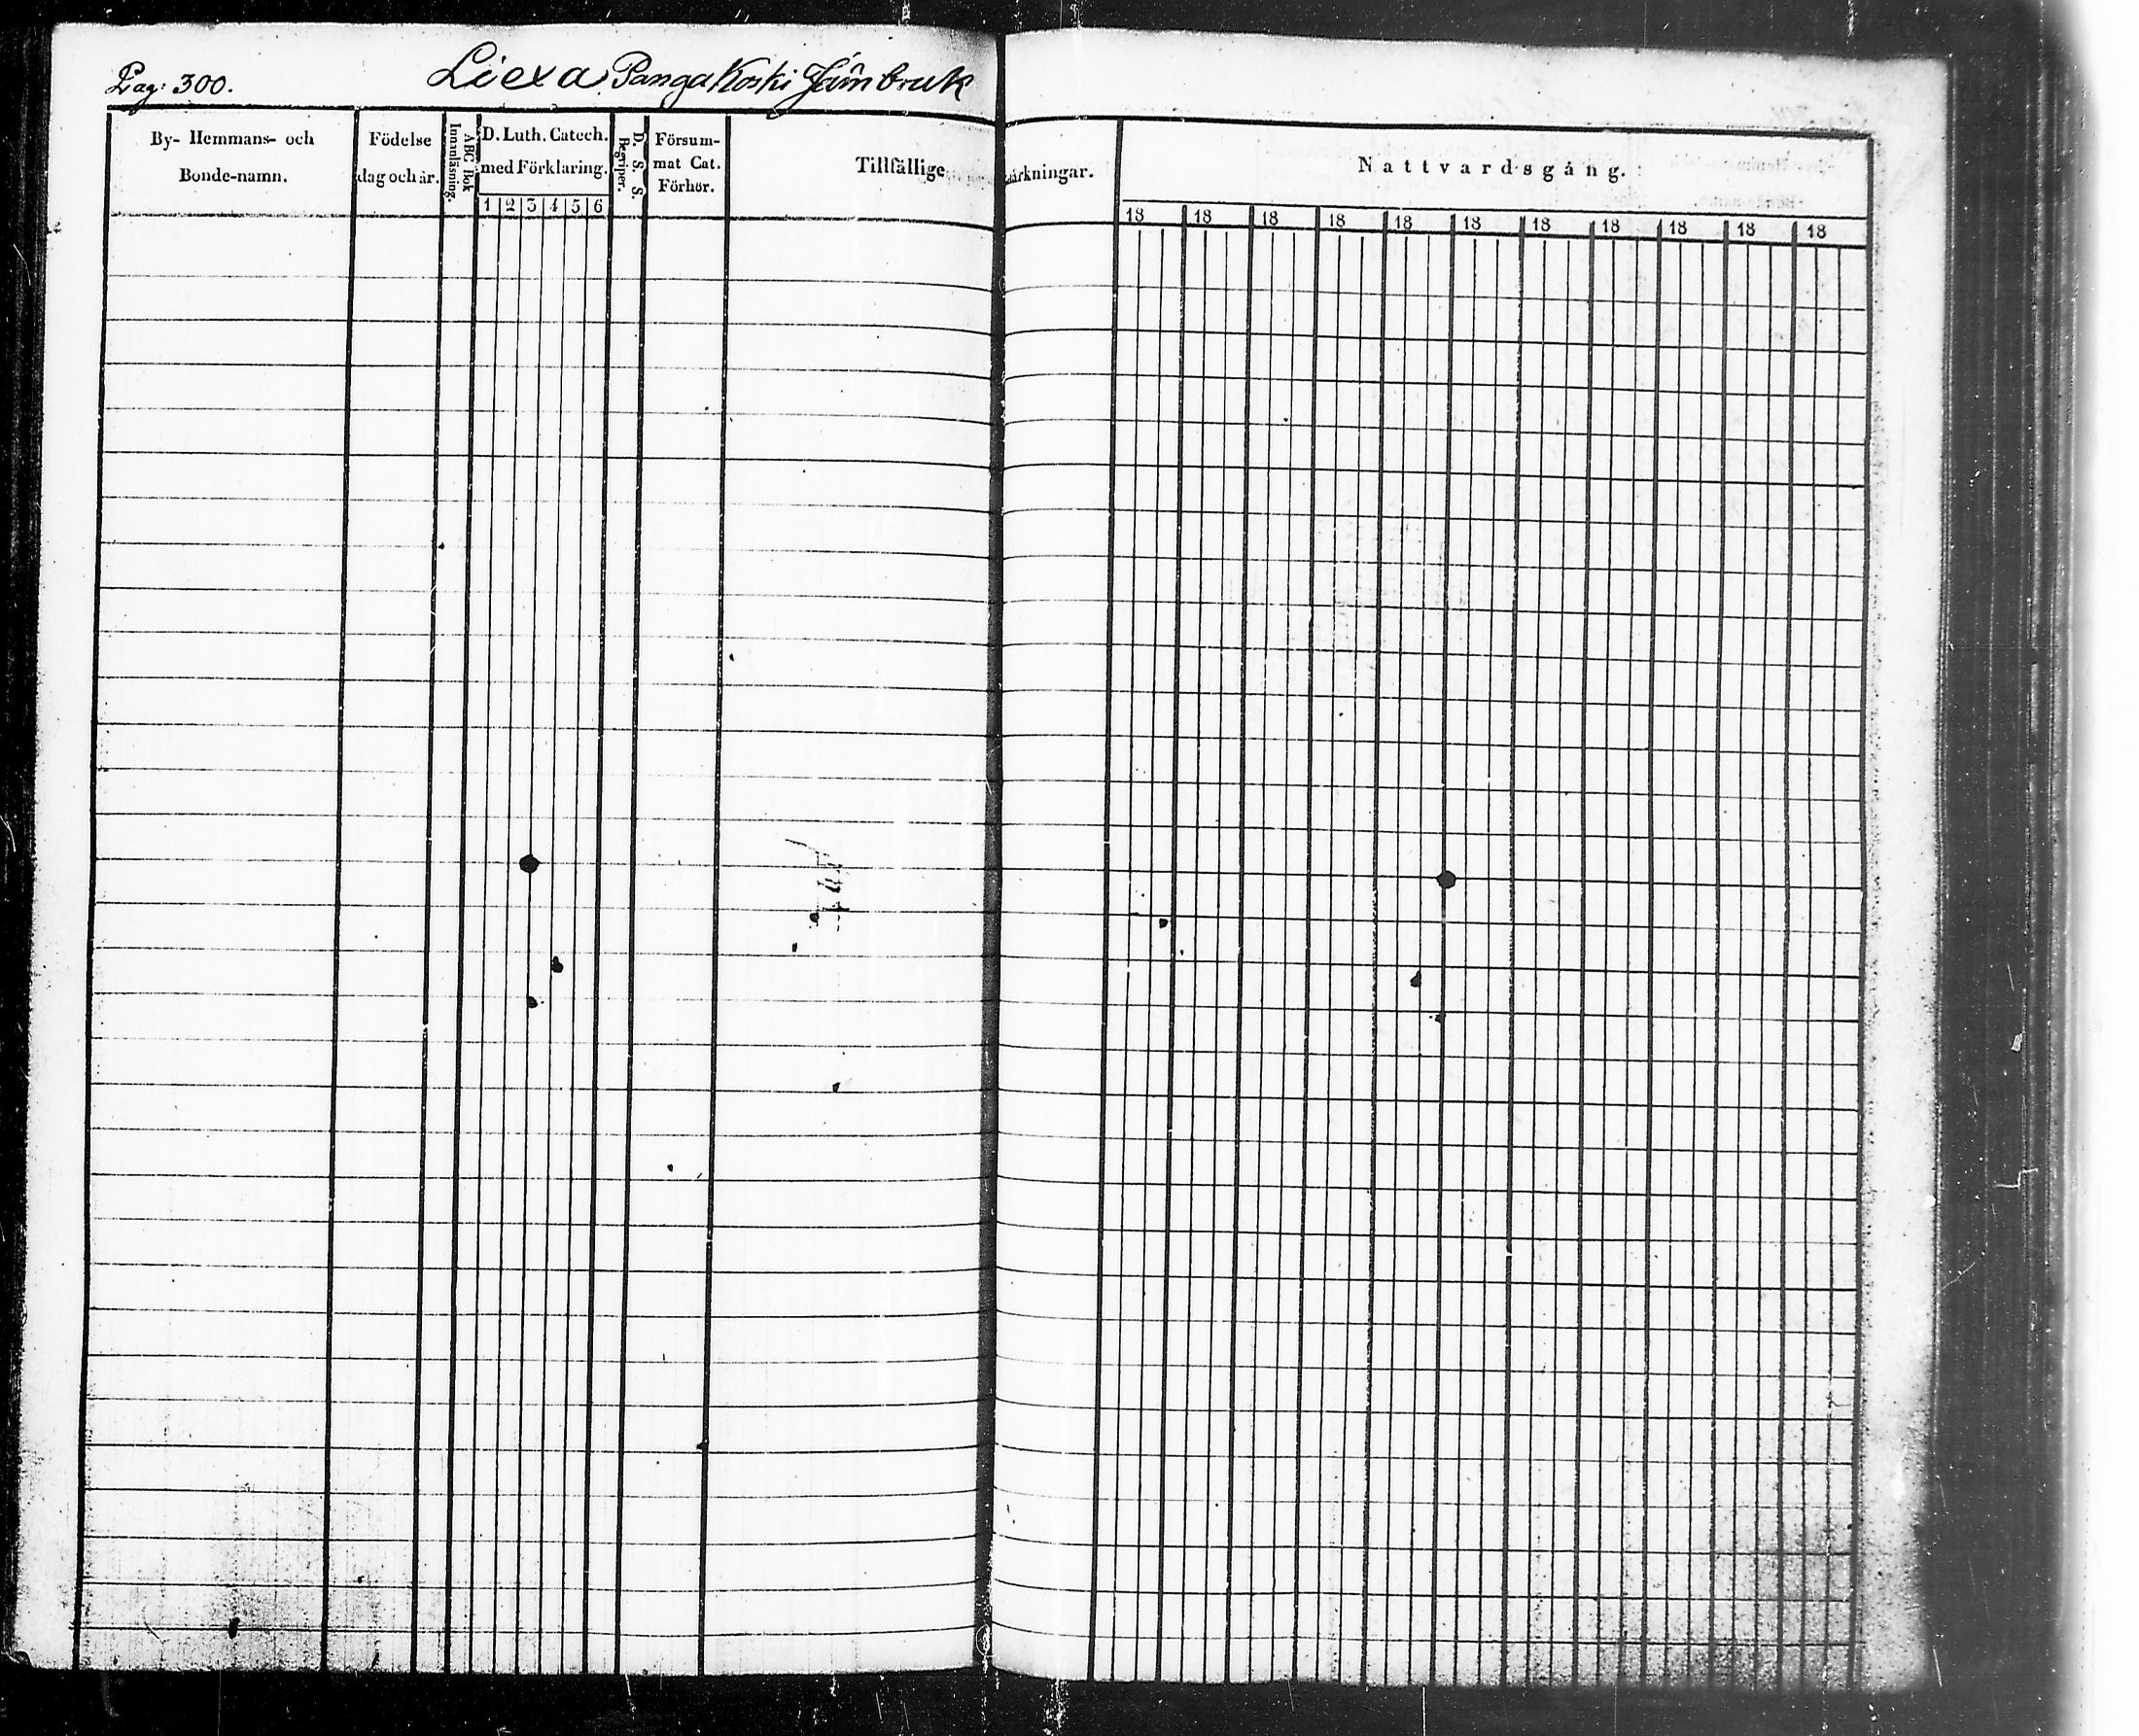 Pag: 300.
Liexa Pangakoski Järnbruk
By- Hemmans- och
Bonde-namn.
Födelse
dag och år.
Innanläsning.
ABC Bok
D. Luth. Catech.
med Förklaring.
1 2 3 4 5 6
Begriper.
D. S. S.
Försum-
mat Cat.
Förhör.
Tillfällige
märkningar.
Nattvardsgång.
18 18 18 18 18 18 18 18 18 18 18